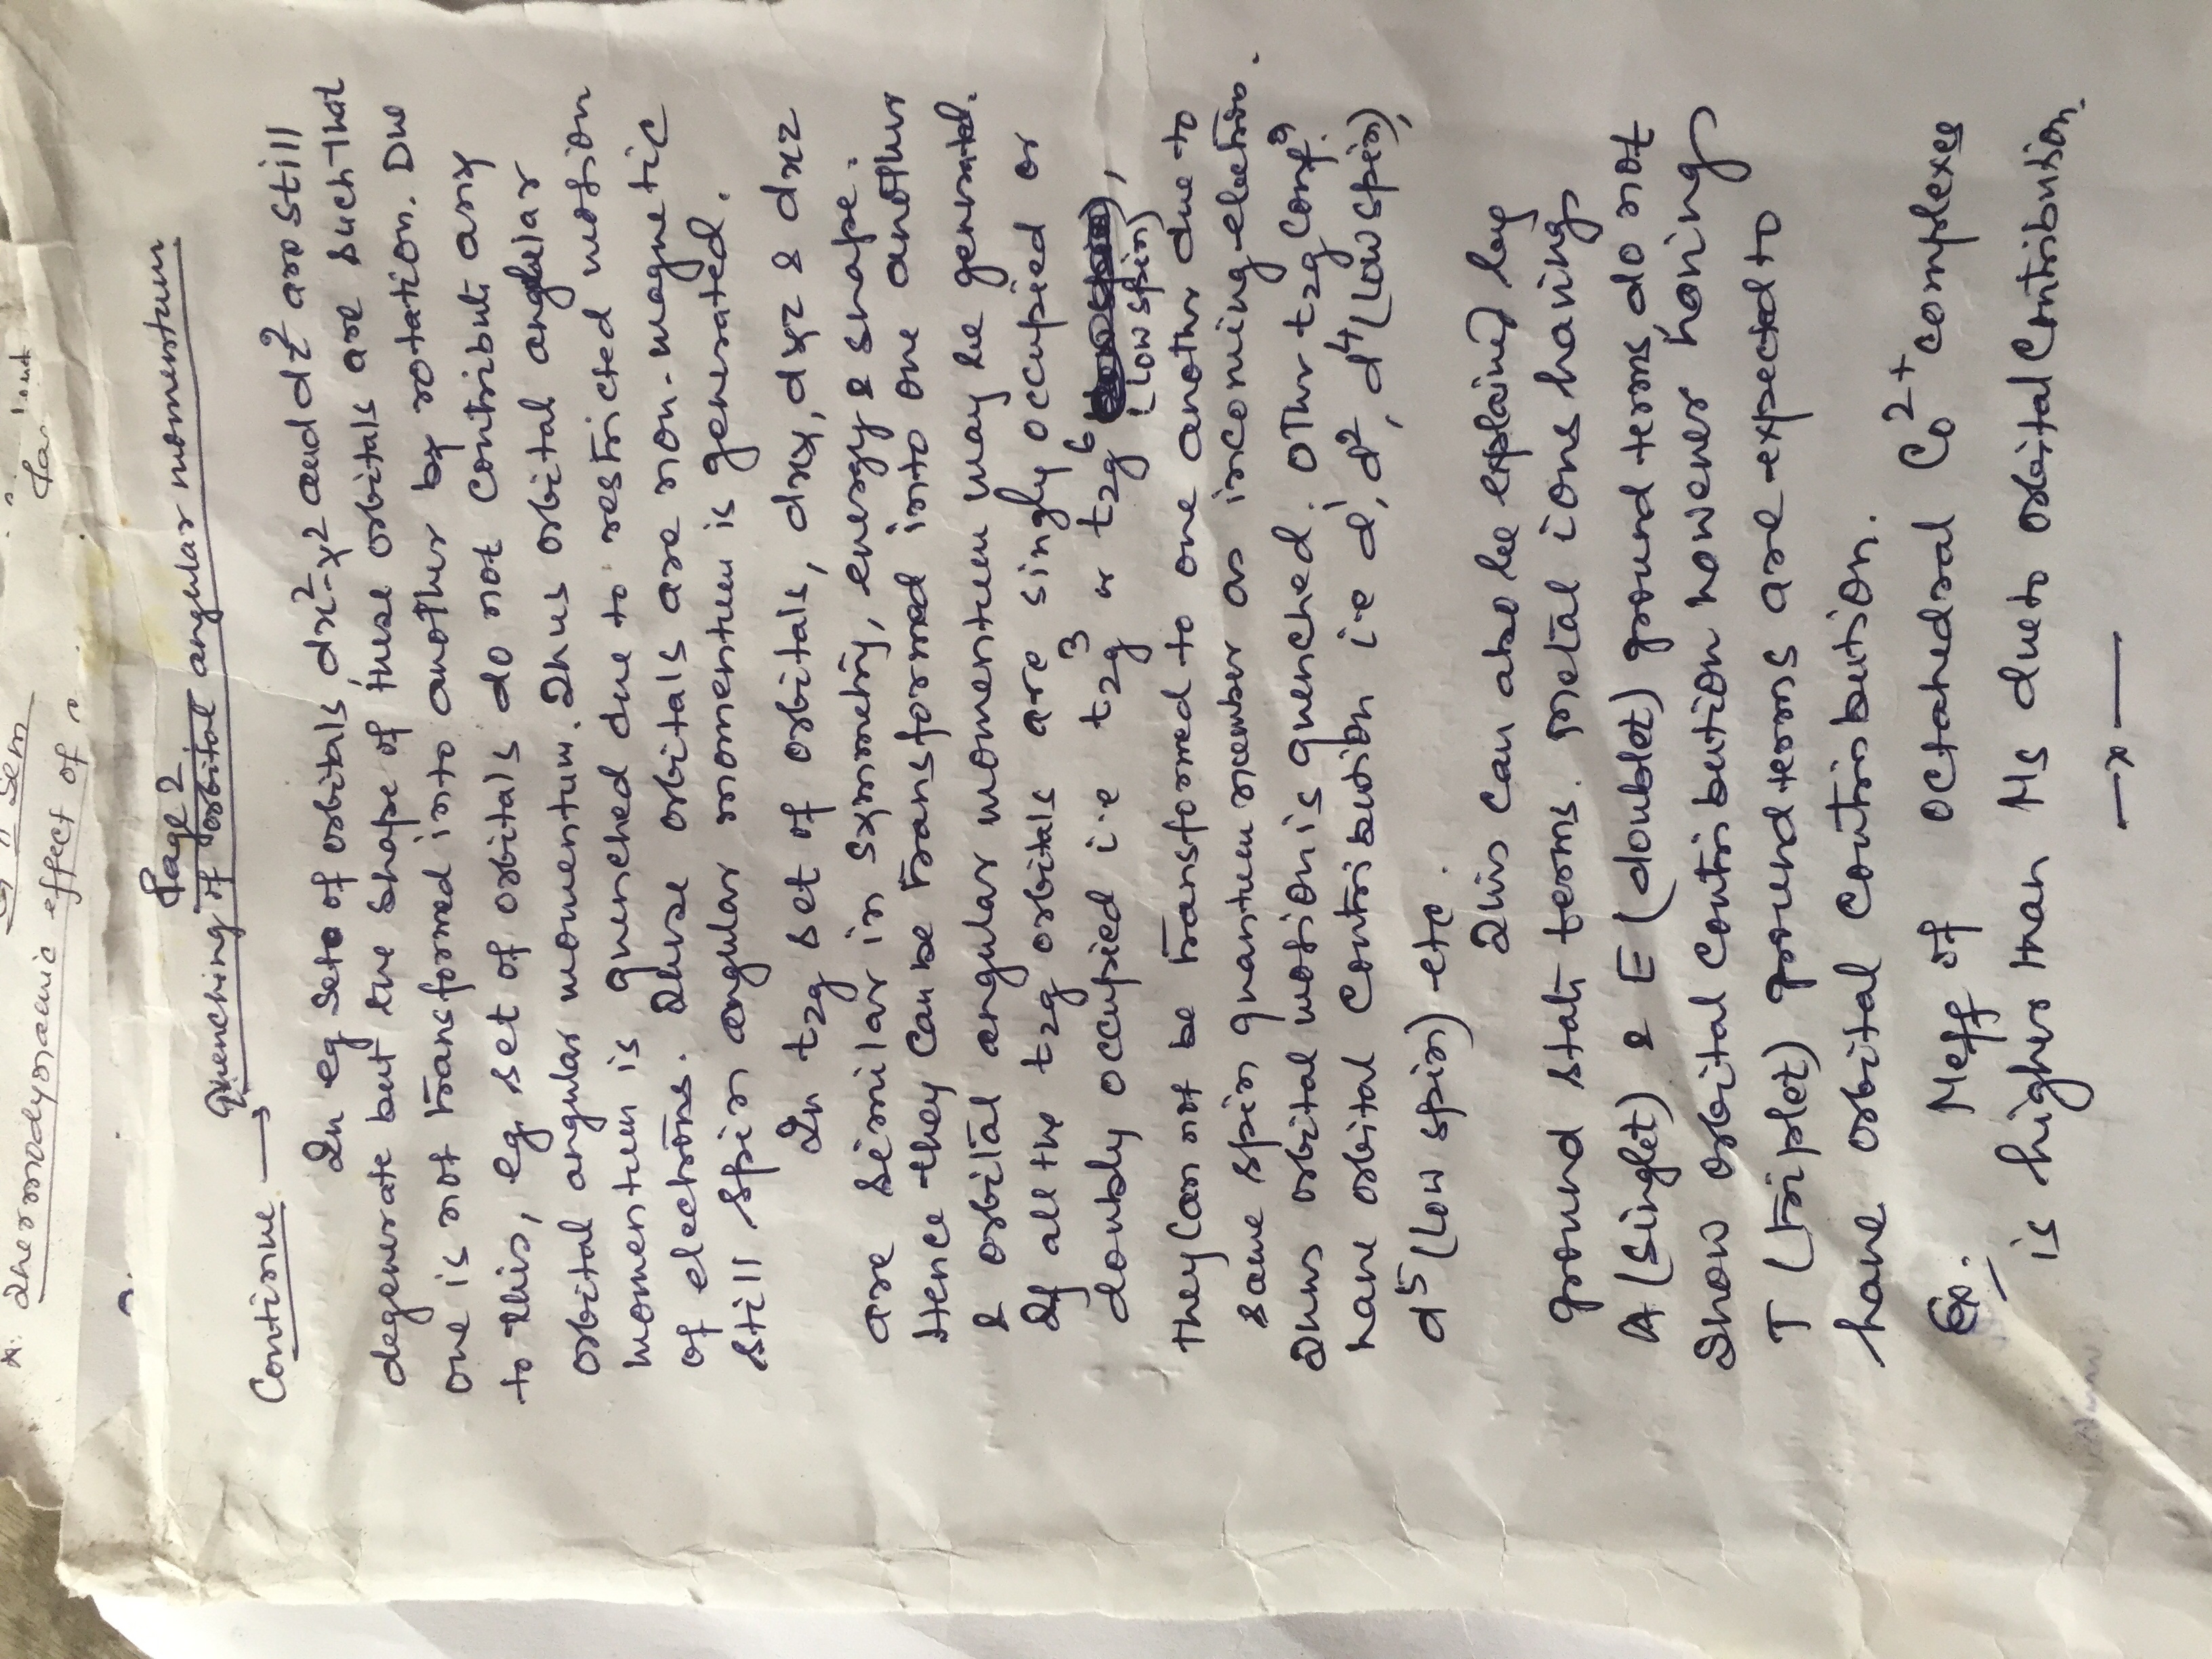 * Thermodynamic effect of
Page 2
Continue → Quenching of orbital angular momentum
In eg set of orbitals dx²-y² and dz² are still
degenerate but the shape of these orbitals are such that
one is not transformed into another by rotation. Due
to this, eg set of orbitals do not contribute any
orbital angular momentum. Thus orbital angular
momentum is quenched due to restricted motion
of electrons. These orbitals are non-magnetic
still spin angular momentum is generated.
In t2g set of orbitals, dxy, dyz & dxz
are similar in symmetry, energy & shape.
Hence they can be transformed into one another
& orbital angular momentum may be generated.
If all the t2g orbitals are singly occupied or
doubly occupied i.e t2g³ or t2g⁶ (low spin),
they can not be transformed to one another due to
same spin quantum number as incoming electron.
Thus orbital motion is quenched. Other t2g confⁿ.
have orbital contribution i.e d¹, d², d⁴ (low spin),
d⁵ (low spin) etc.
This can also be explained by
ground state terms. Metal ions having
A (singlet) & E (doublet) ground terms do not
show orbital contribution however having
T (triplet) ground terms are expected to
have orbital contribution.
Ex. Meff of octahedral Co²⁺ complexes
is higher than Ms due to orbital contribution.
—x—